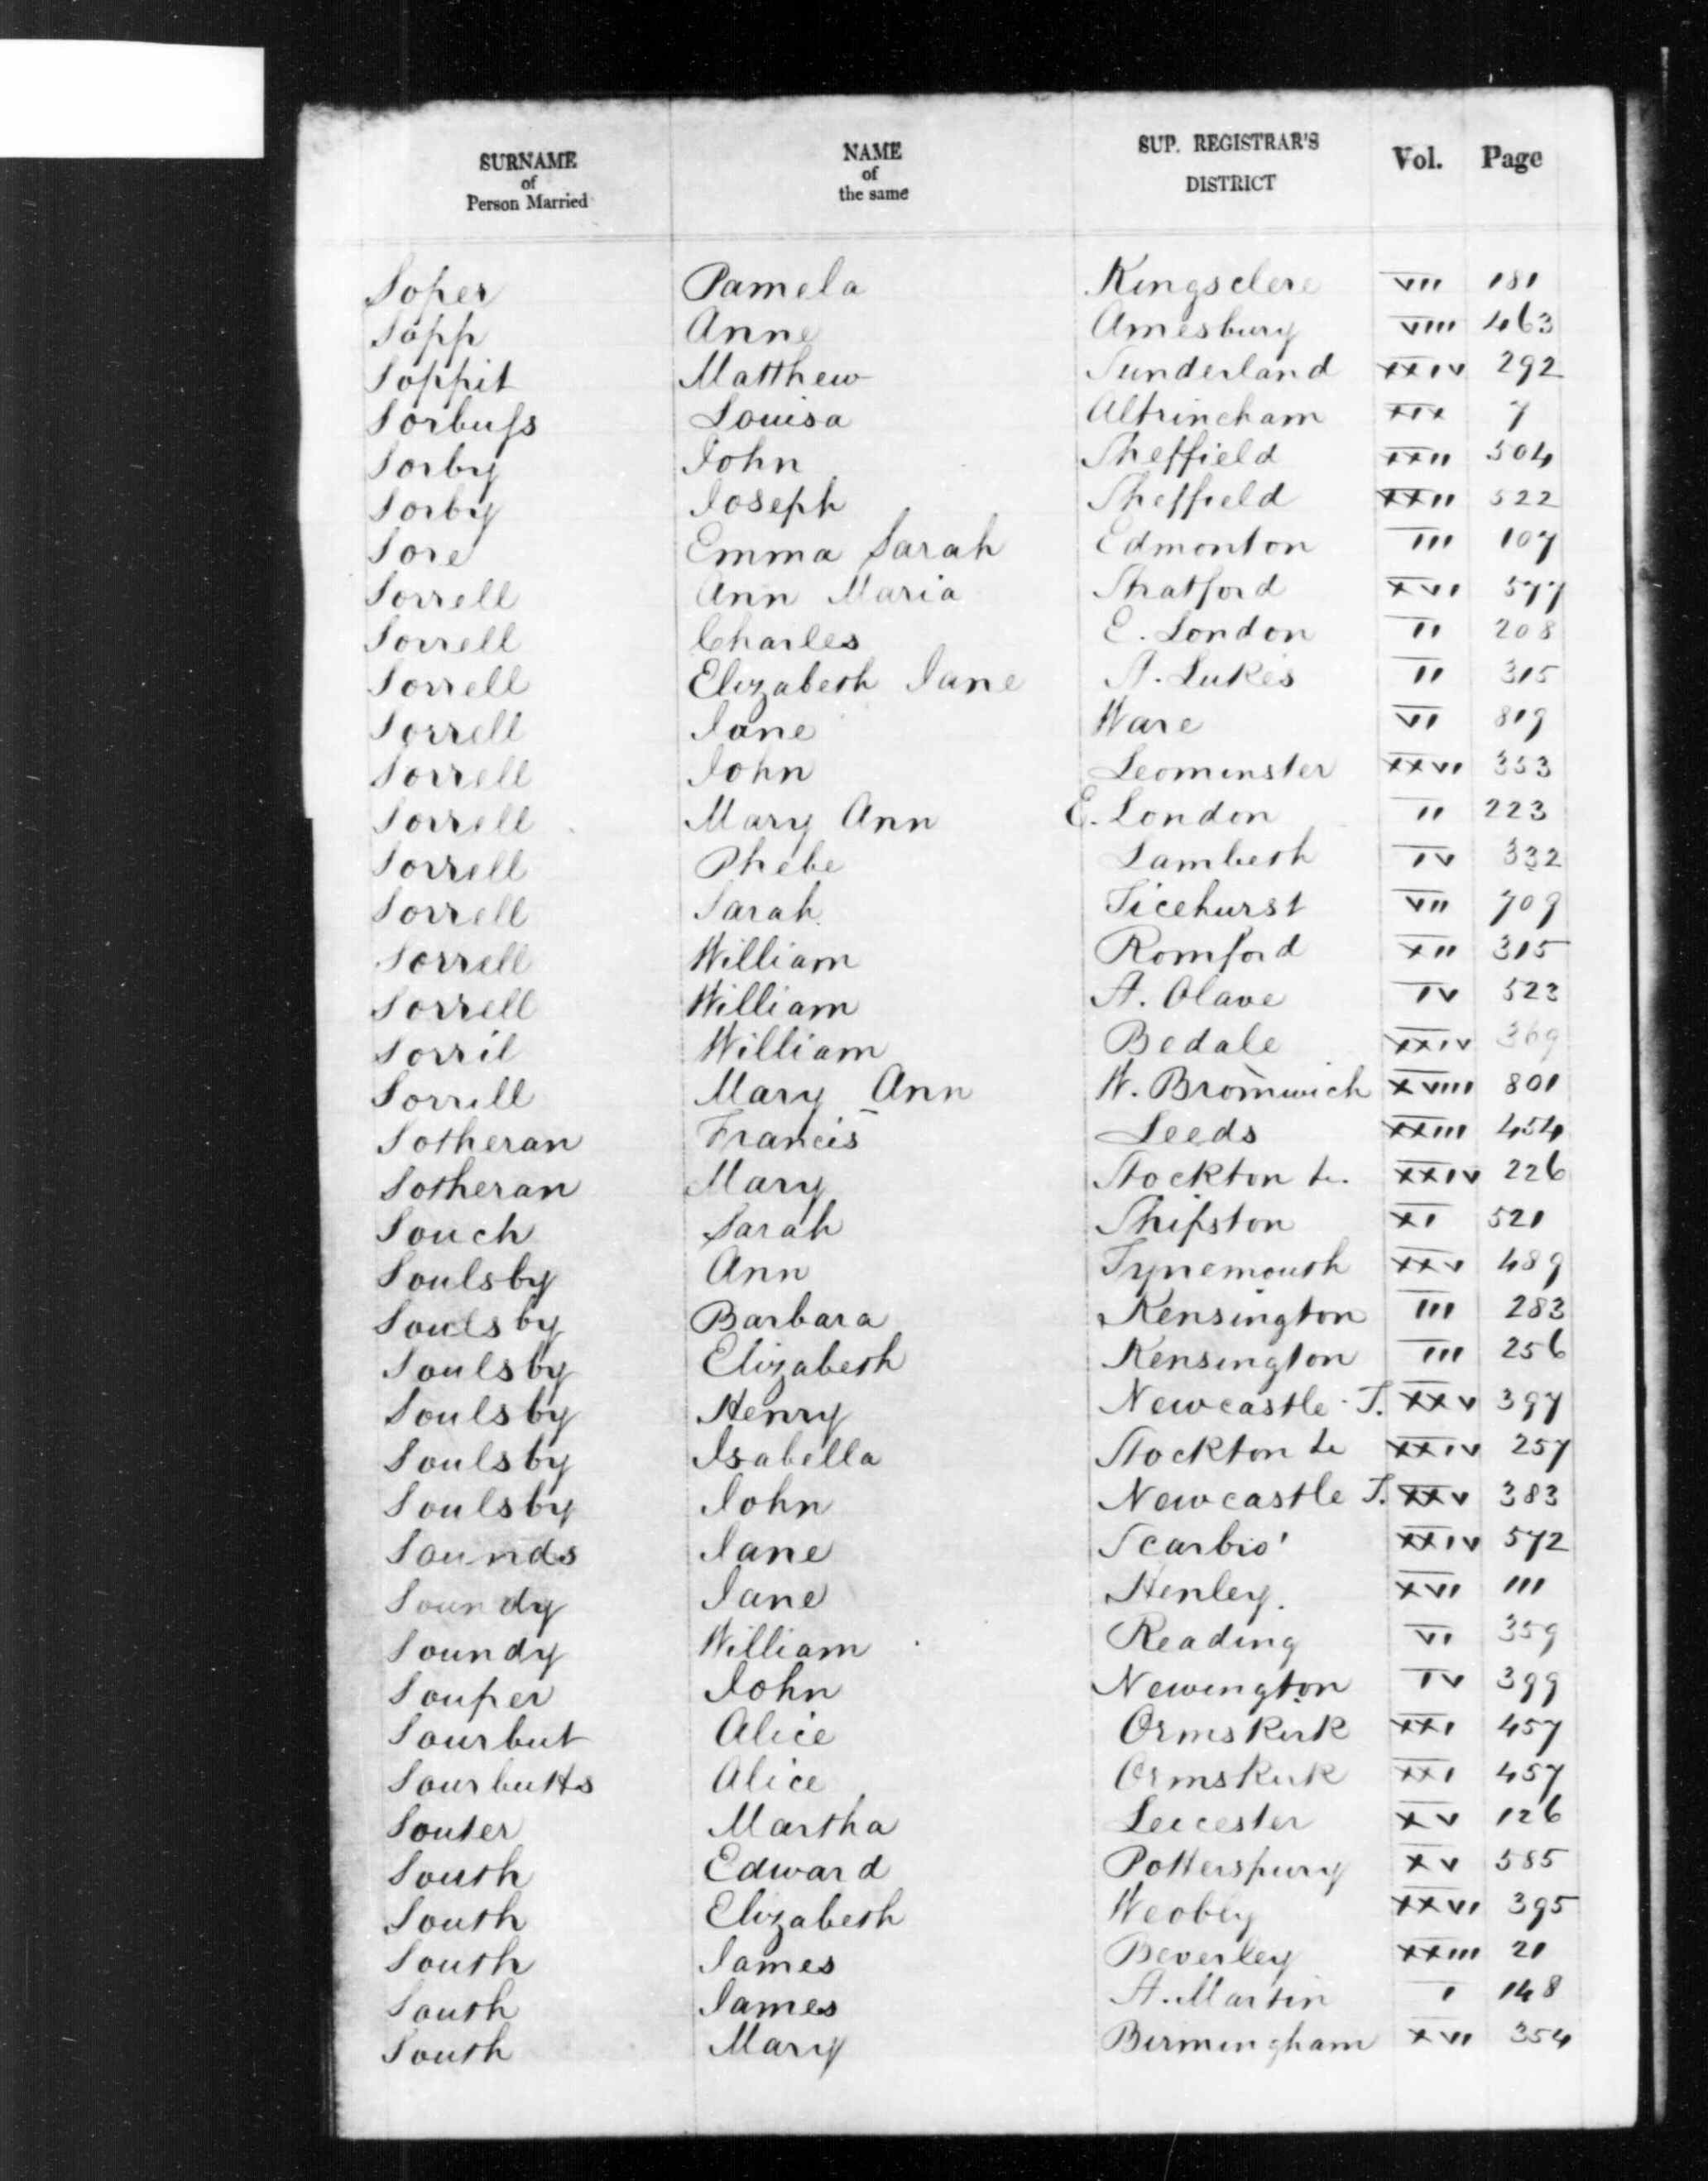 SURNAME of Person Married NAME of the same SUP. REGISTRAR'S DISTRICT Vol. Page
Soper Pamela Kingsclere VII 181
Sopp Anne Amesbury VIII 463
Soppit Matthew Sunderland XXIV 292
Sorbuss Louisa Altrincham XIX 7
Sorby John Sheffield XXII 504
Sorby Joseph Sheffield XXII 522
Sore Emma Sarah Edmonton III 107
Sorrell Ann Maria Stratford XVI 577
Sorrell Charles E. London II 208
Sorrell Elizabeth Jane St. Lukes II 315
Sorrell Jane Ware VI 819
Sorrell John Leominster XXVI 353
Sorrell Mary Ann E. London II 223
Sorrell Phebe Lambeth IV 332
Sorrell Sarah Ticehurst VII 709
Sorrell William Romford XII 315
Sorrell William St. Olave IV 523
Sorril William Bedale XXIV 369
Sorrill Mary Ann W. Bromwich XVIII 801
Sotheran Francis Leeds XXIII 454
Sotheran Mary Stockton te. XXIV 226
Souch Sarah Shipston XI 521
Soulsby Ann Tynemouth XXV 489
Soulsby Barbara Kensington III 283
Soulsby Elizabeth Kensington III 256
Soulsby Henry Newcastle T. XXV 397
Soulsby Isabella Stockton te XXIV 257
Soulsby John Newcastle T. XXV 383
Sounds Jane Scarbro' XXIV 572
Soundy Jane Henley. XVI 111
Soundy William Reading VI 359
Souper John Newington IV 399
Sourbut Alice Ormskirk XXI 457
Sourbutts Alice Ormskirk XXI 457
Souter Martha Leicester XV 126
South Edward Potterspury XV 585
South Elizabeth Weobly XXVI 395
South James Beverley XXIII 21
South James St. Martin I 148
South Mary Birmingham XVI 354